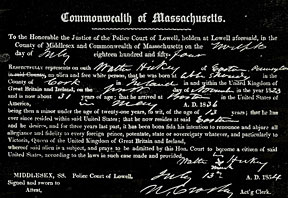 Commonwealth of Massachusetts.
To the Honorable the Justice of the Police Court of Lowell, holden at Lowell aforesaid, in the
County of Middlesex and Commonwealth of Massachusetts on the twelfth
day of July eighteen hundred and fifty four
Respectfully represents on oath Walter Hickey of
in said County, an alien and free white person, that he was born at
County of Cork in Ireland and within the United Kingdom of
Great Britain and Ireland, on the first day of November in the year 1823
and is now about 31 years of age; that he arrived at Boston in the United States of
America, in May A. D. 1836
being then a minor under the age of twenty-one years, to wit, of the age of 13 years; that he has
ever since resided within said United States; that he now resides at said
and he desires, and for three years last past, it has been bona fide his intention to renounce and abjure all
allegiance and fidelity to every foreign prince, potentate, state or sovereignty whatever, and particularly to
Victoria, Queen of the United Kingdom of Great Britain and Ireland,
whereof said alien is a subject, and prays to be admitted by this Hon. Court to become a citizen of said
United States, according to the laws in such case made and provided.
Walter Hickey
MIDDLESEX, SS. Police Court of Lowell, July 12th A. D. 1854
Signed and sworn to
Attest, N. Crosby Act'g Clerk.